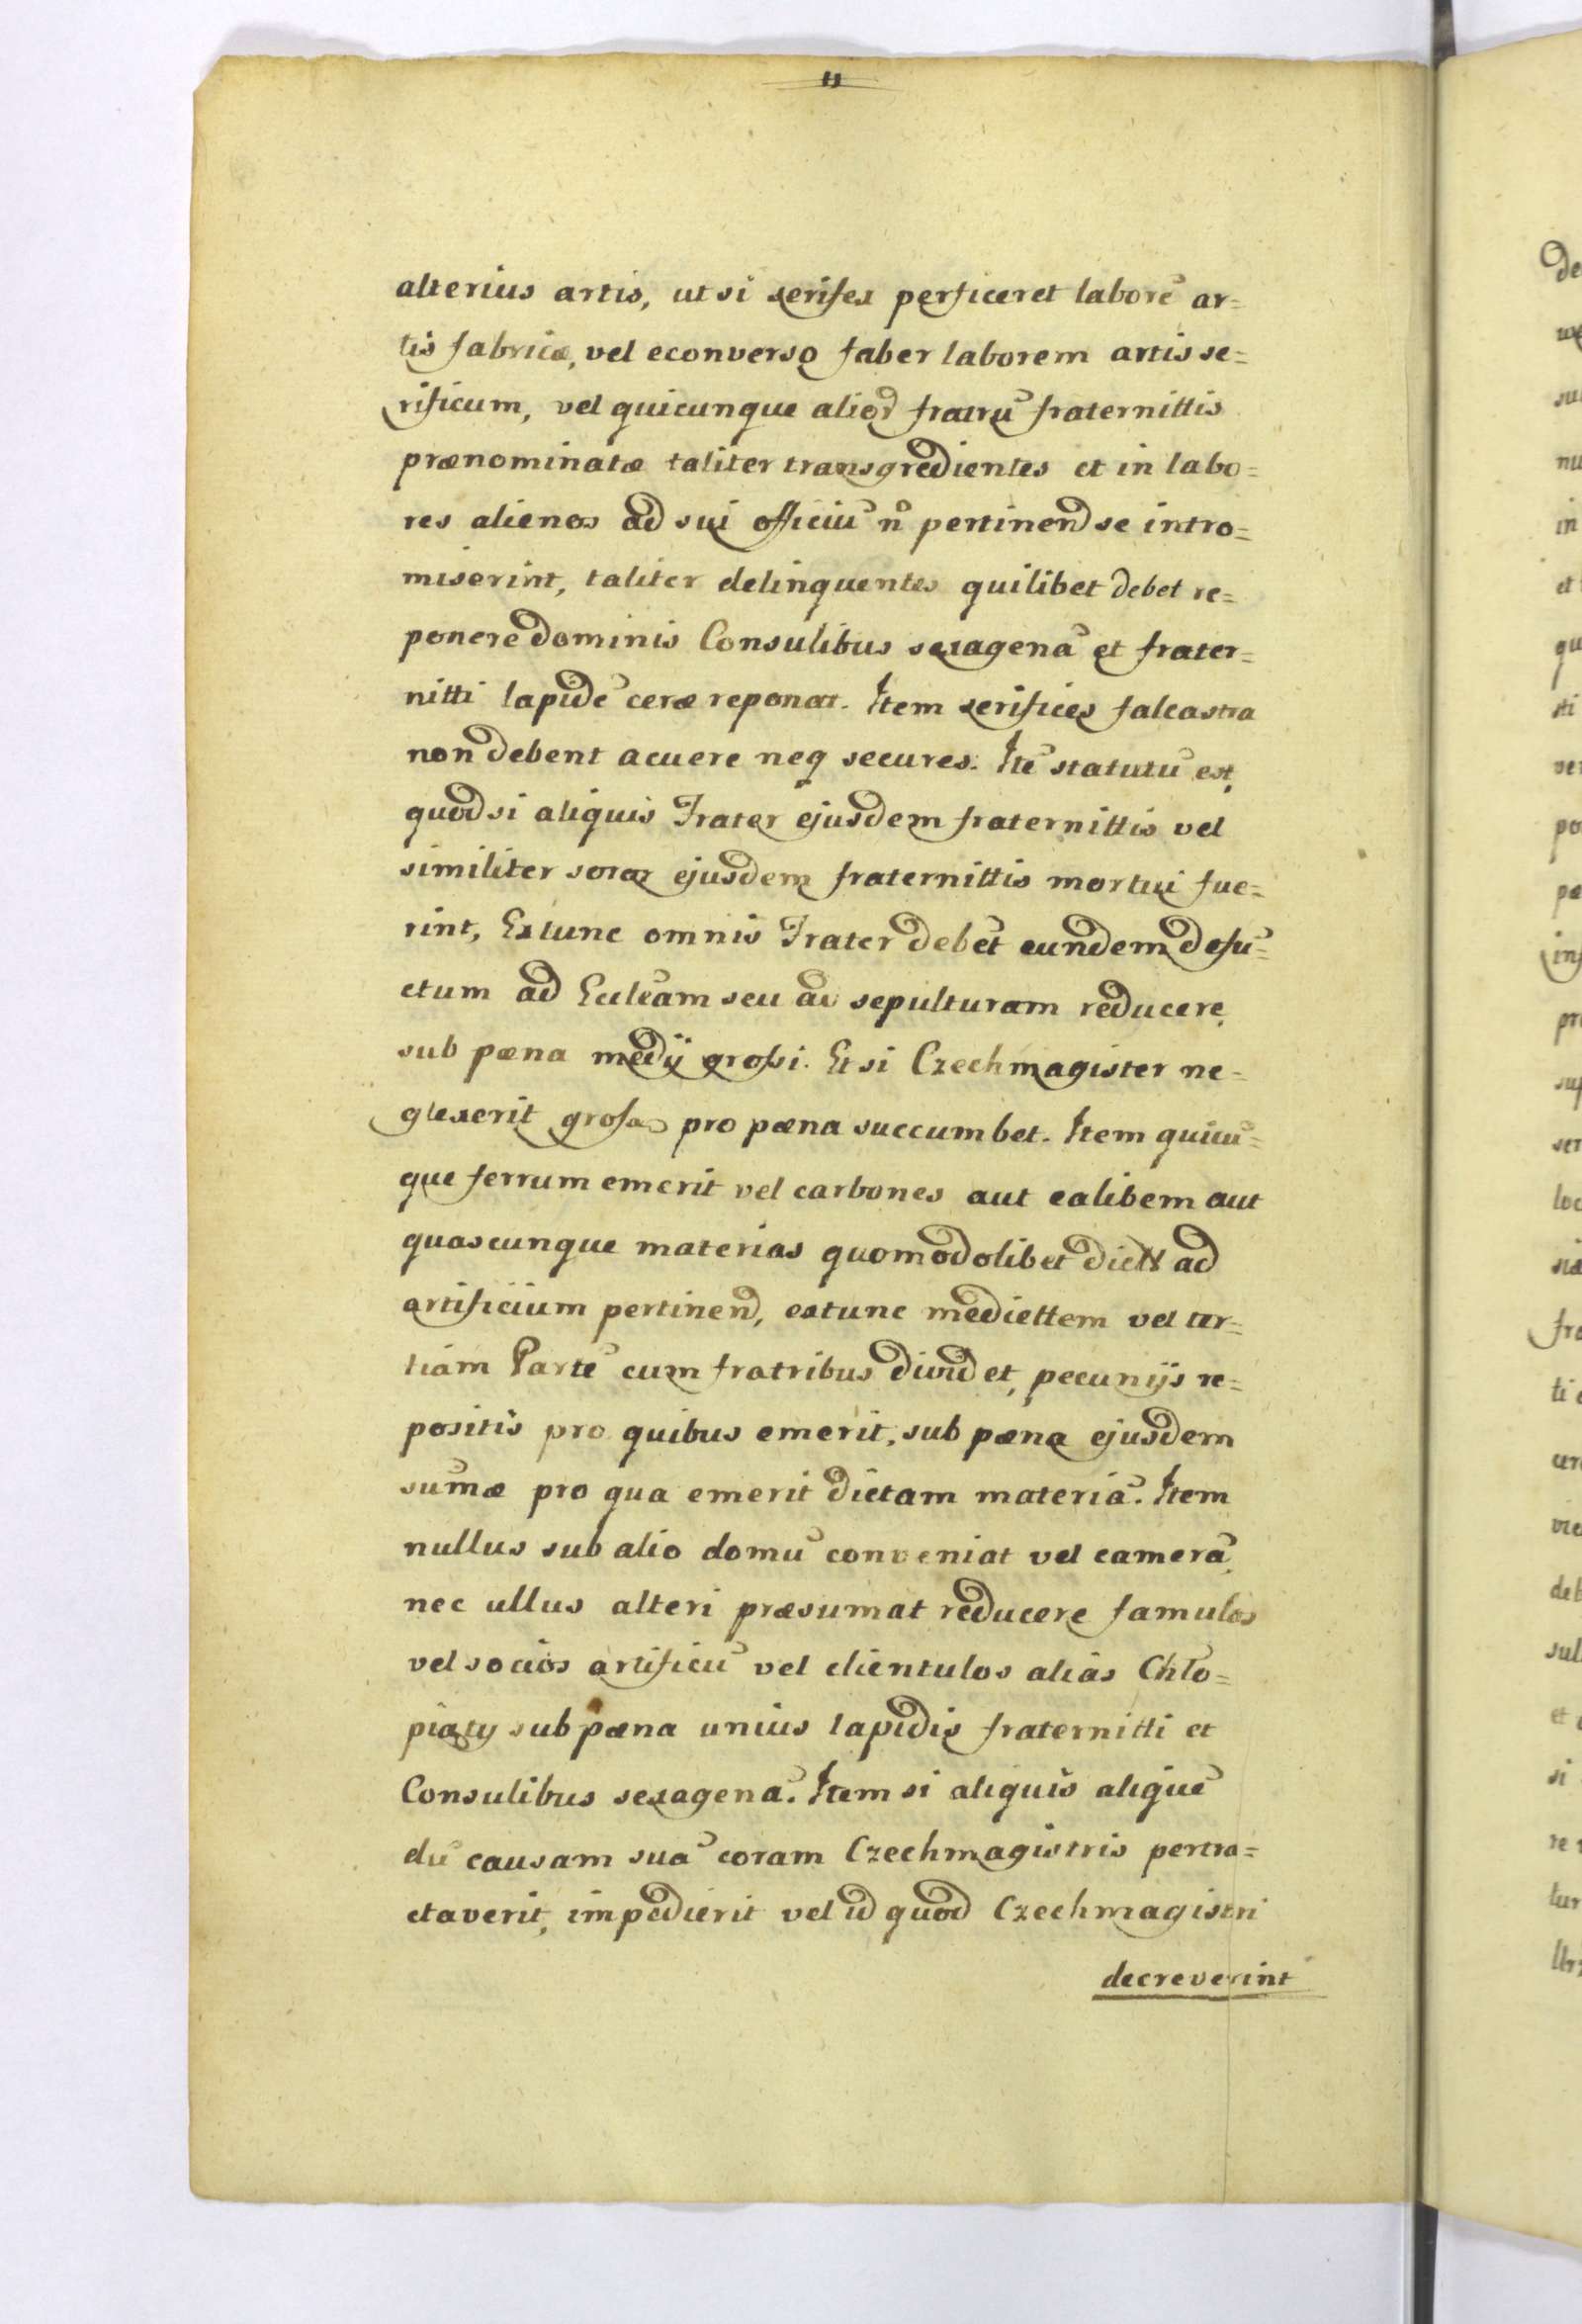 alterius artis, ut si serifex perficeret laborẽ ar=
tis fabricæ, vel econverso faber laborem artis se=
rificum, vel quicunque alior fratrũ fraternittis
prænominatæ taliter transgredientes et in labo=
res alienos ad sui officiũ nõ pertinend se intro=
miserint, taliter delinquentes quilibet debet re=
ponere dominis Consulibus sexagenã et frater=
nitti lapidẽ ceræ reponat. Item serifices falcastra
non debent acuere neq secures. Itẽ statutũ est,
quod si aliquis Frater ejusdem fraternittis vel
similiter soror ejusdem fraternittis mortui fue=
rint, Extunc omnis Frater debet eundem defũ=
ctum ad Ecclẽam seu ad sepulturam reducere,
sub pæna medij grossi. Et si Czechmagister ne=
glexerit grossa pro pæna succumbet. Item quicũ=
que ferrum emerit vel carbones aut calibem aut
quascunque materias quomodolibet dictt ad
artificium pertinend, extunc mediettem vel ter=
tiam Partẽ cum fratribus dividet, pecunijs re=
positis pro quibus emerit, sub pæna ejusdem
sum̃æ pro qua emerit dictam materiã. Item
nullus sub alio domũ conveniat vel camerã,
nec ullus alteri præsumat reducere famulos
vel socios artificũ vel clientulos alias Chło=
pięty sub pæna unius lapidis fraternitti et
Consulibus sexagenã. Item si aliquis aliquẽ
dũ causam suã coram Czechmagistris pertra=
ctaverit, impedierit vel id quod Czechmagistri
decreverint